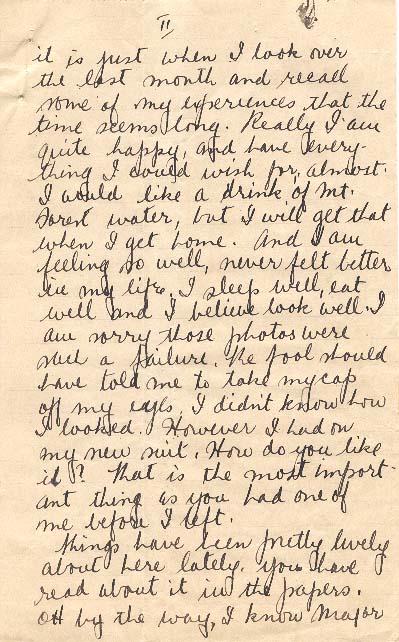 II
it is just when I look over
the last month and recall
some of my experiences that the
time seems long. Really I am
quite happy, and have every-
thing I could wish for, almost.
I would like a drink of Mt.
Forest water, but I will get that
when I get home. And I am
feeling so well, never felt better
in my life. I sleep well, eat
well and I believe look well. I
am sorry those photos were
such a failure. The fool should
have told me to take my cap
off my eyes, I didn't know how
I looked. However I had on
my new suit. How do you like
it? That is the most import-
ant thing as you had one of
me before I left.
Things have been pretty lively
about here lately. You have
read about it in the papers.
Oh by the way, I know Major